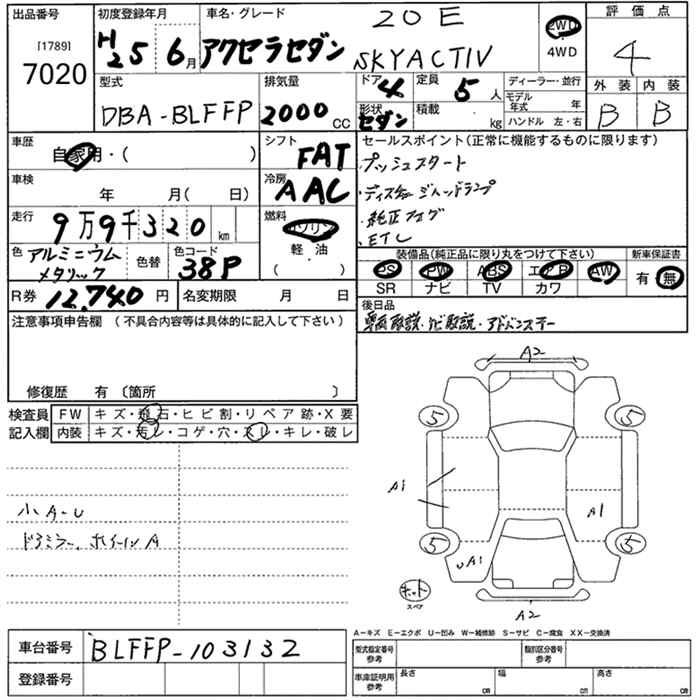 出品番号
[1789]
7020
初度登録年月
H25 6月
車名・グレード
20E
アクセラセダン SKYACTIV
2WD
4WD
評価点
4
外装 内装
B B
型式
DBA-BLFFP
排気量
2000 CC
ドア 4
形状 セダン
定員 5 人
積載 kg
ディーラー・並行
モデル年式 年
ハンドル 左・右
車歴
自家用・( )
シフト
FAT
車検
年 月( 日)
冷房
AAC
走行
9万9千320 km
燃料
ガソリン
軽・油
( )
色 アルミニウム
メタリック
色替
色コード
38P
R券 12,740 円
名変期限 月 日
セールスポイント(正常に機能するものに限ります)
・プッシュスタート
・ディスチャージヘッドランプ
・純正フォグ
・ETC
装備品(純正品に限り丸をつけて下さい)
新車保証書
PS PW ABS エアB AW
SR ナビ TV カワ
有・無
後日品
車両取説・ナビ取説・アドバンスキー
注意事項申告欄 (不具合内容等は具体的に記入して下さい)
修復歴 有 〔箇所 〕
検査員
記入欄
FW キズ・飛石・ヒビ割・リペア跡・X要
内装 キズ・汚レ・コゲ・穴・スレ・キレ・破レ
小A-U
ドアミラー、ホイールA
A2
5 5
A1 A1
5 5
UA1
キット
スペア
A2
A-キズ E-エクボ U-凹み W-補修跡 S-サビ C-腐食 XX-交換済
車台番号 BLFFP-103132
登録番号
型式指定番号
参考
類別区分番号
参考
車庫証明用
参考
長さ cm
幅 cm
高さ cm